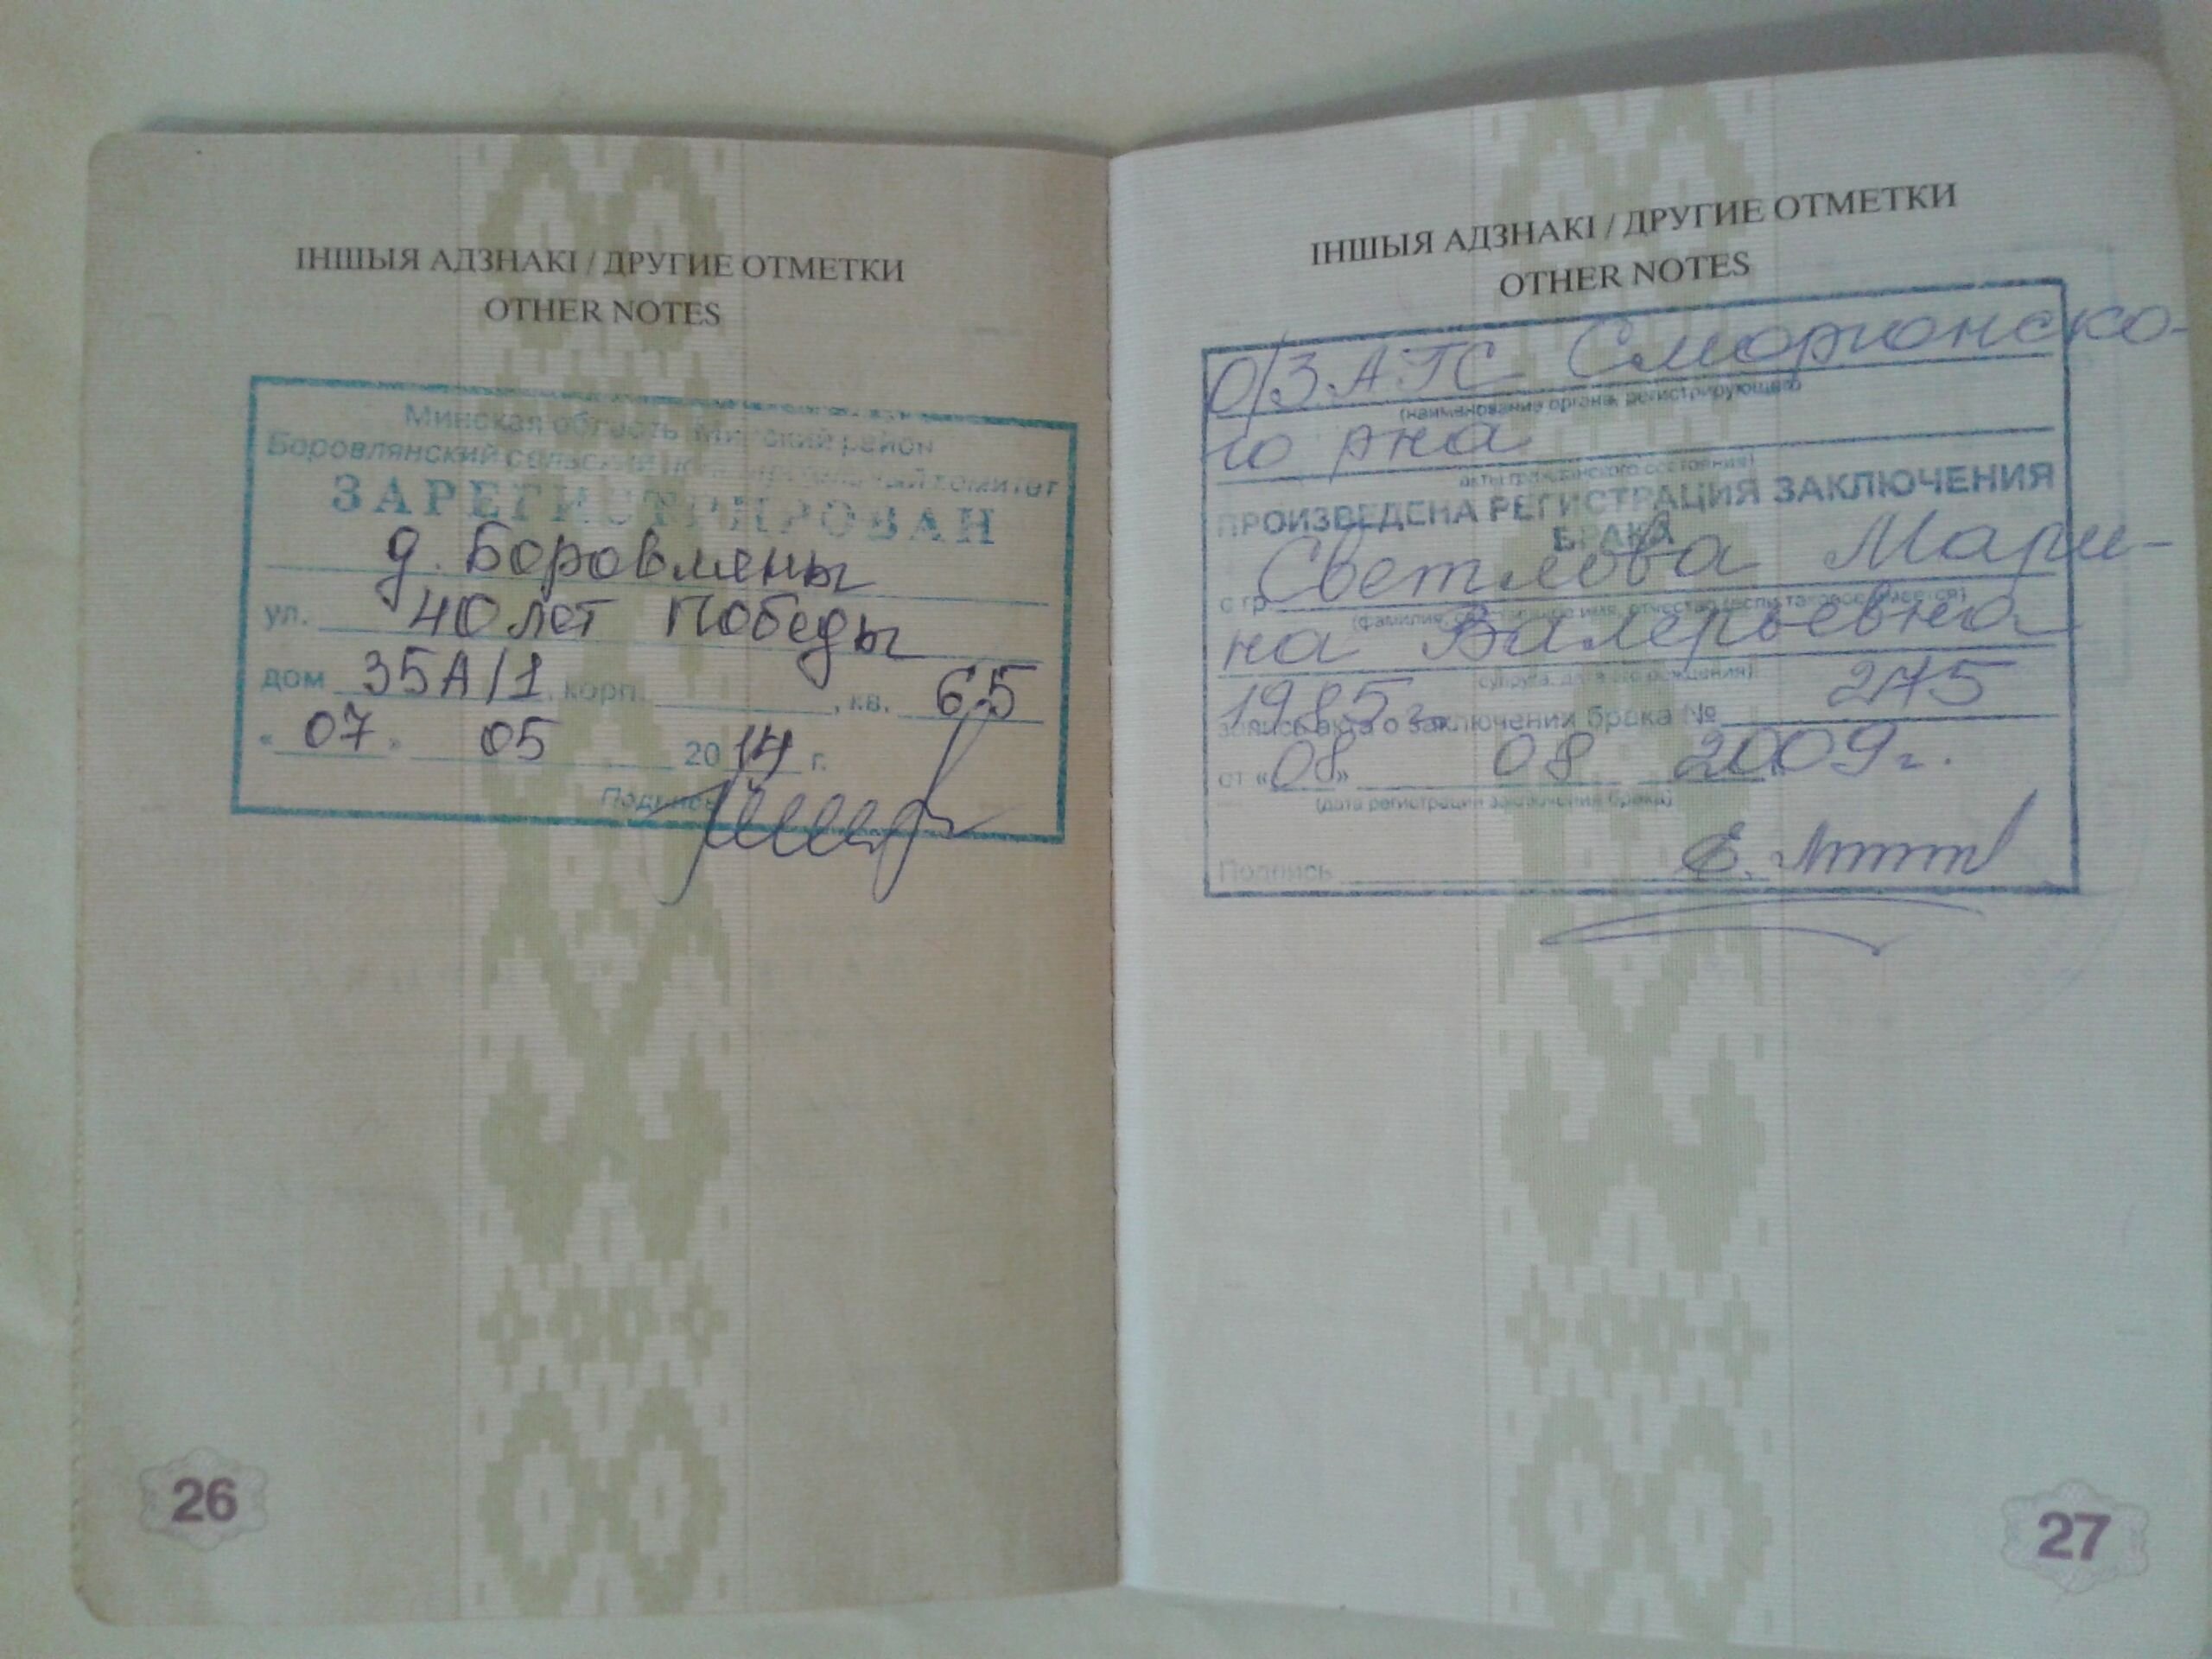 ІНШЫЯ АДЗНАКІ / ДРУГИЕ ОТМЕТКИ
OTHER NOTES
Минская область Минский район
Боровлянский сельский исполнительный комитет
ЗАРЕГИСТРИРОВАН
д. Боровляны
ул. 40 лет Победы
дом 35А/1, корп. , кв. 65
«07» 05 2014 г.
Подпись
26
ІНШЫЯ АДЗНАКІ / ДРУГИЕ ОТМЕТКИ
OTHER NOTES
О/ЗАГС Сморгонско-
(наименование органа, регистрирующего
го р-на
акты гражданского состояния)
ПРОИЗВЕДЕНА РЕГИСТРАЦИЯ ЗАКЛЮЧЕНИЯ
БРАКА
с гр. Светлова Мари-
(фамилия, собственное имя, отчество (если таковое имеется)
на Валерьевна
(супруга, дата его рождения)
1985 г.
запись акта о заключении брака № 275
от «08» 08 2009 г.
(дата регистрации заключения брака)
Подпись
27